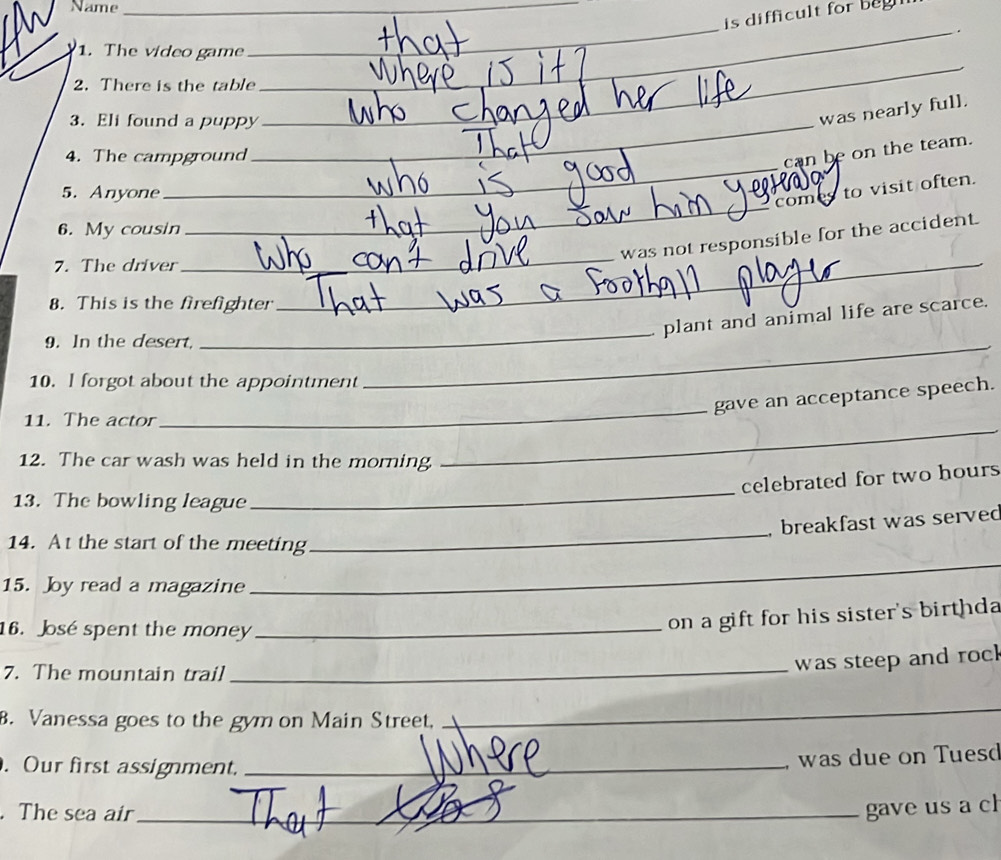 HW
Name
1. The video game that is difficult for
2. There is the table Where is it? .
3. Eli found a puppy who changed her life
4. The campground That was nearly full.
5. Anyone who is good can be on the team.
6. My cousin that you saw him comes to visit often.
7. The driver Who can't drive was not responsible for the accident.
8. This is the firefighter That was a football player
9. In the desert, plant and animal life are scarce.
10. I forgot about the appointment .
11. The actor gave an acceptance speech.
12. The car wash was held in the morning, .
13. The bowling league celebrated for two hours
14. At the start of the meeting , breakfast was served
15. Joy read a magazine
16. José spent the money on a gift for his sister's birthda
7. The mountain trail was steep and rock
8. Vanessa goes to the gym on Main Street, Where
. Our first assignment, , was due on Tuesd
. The sea air That gave us a ch